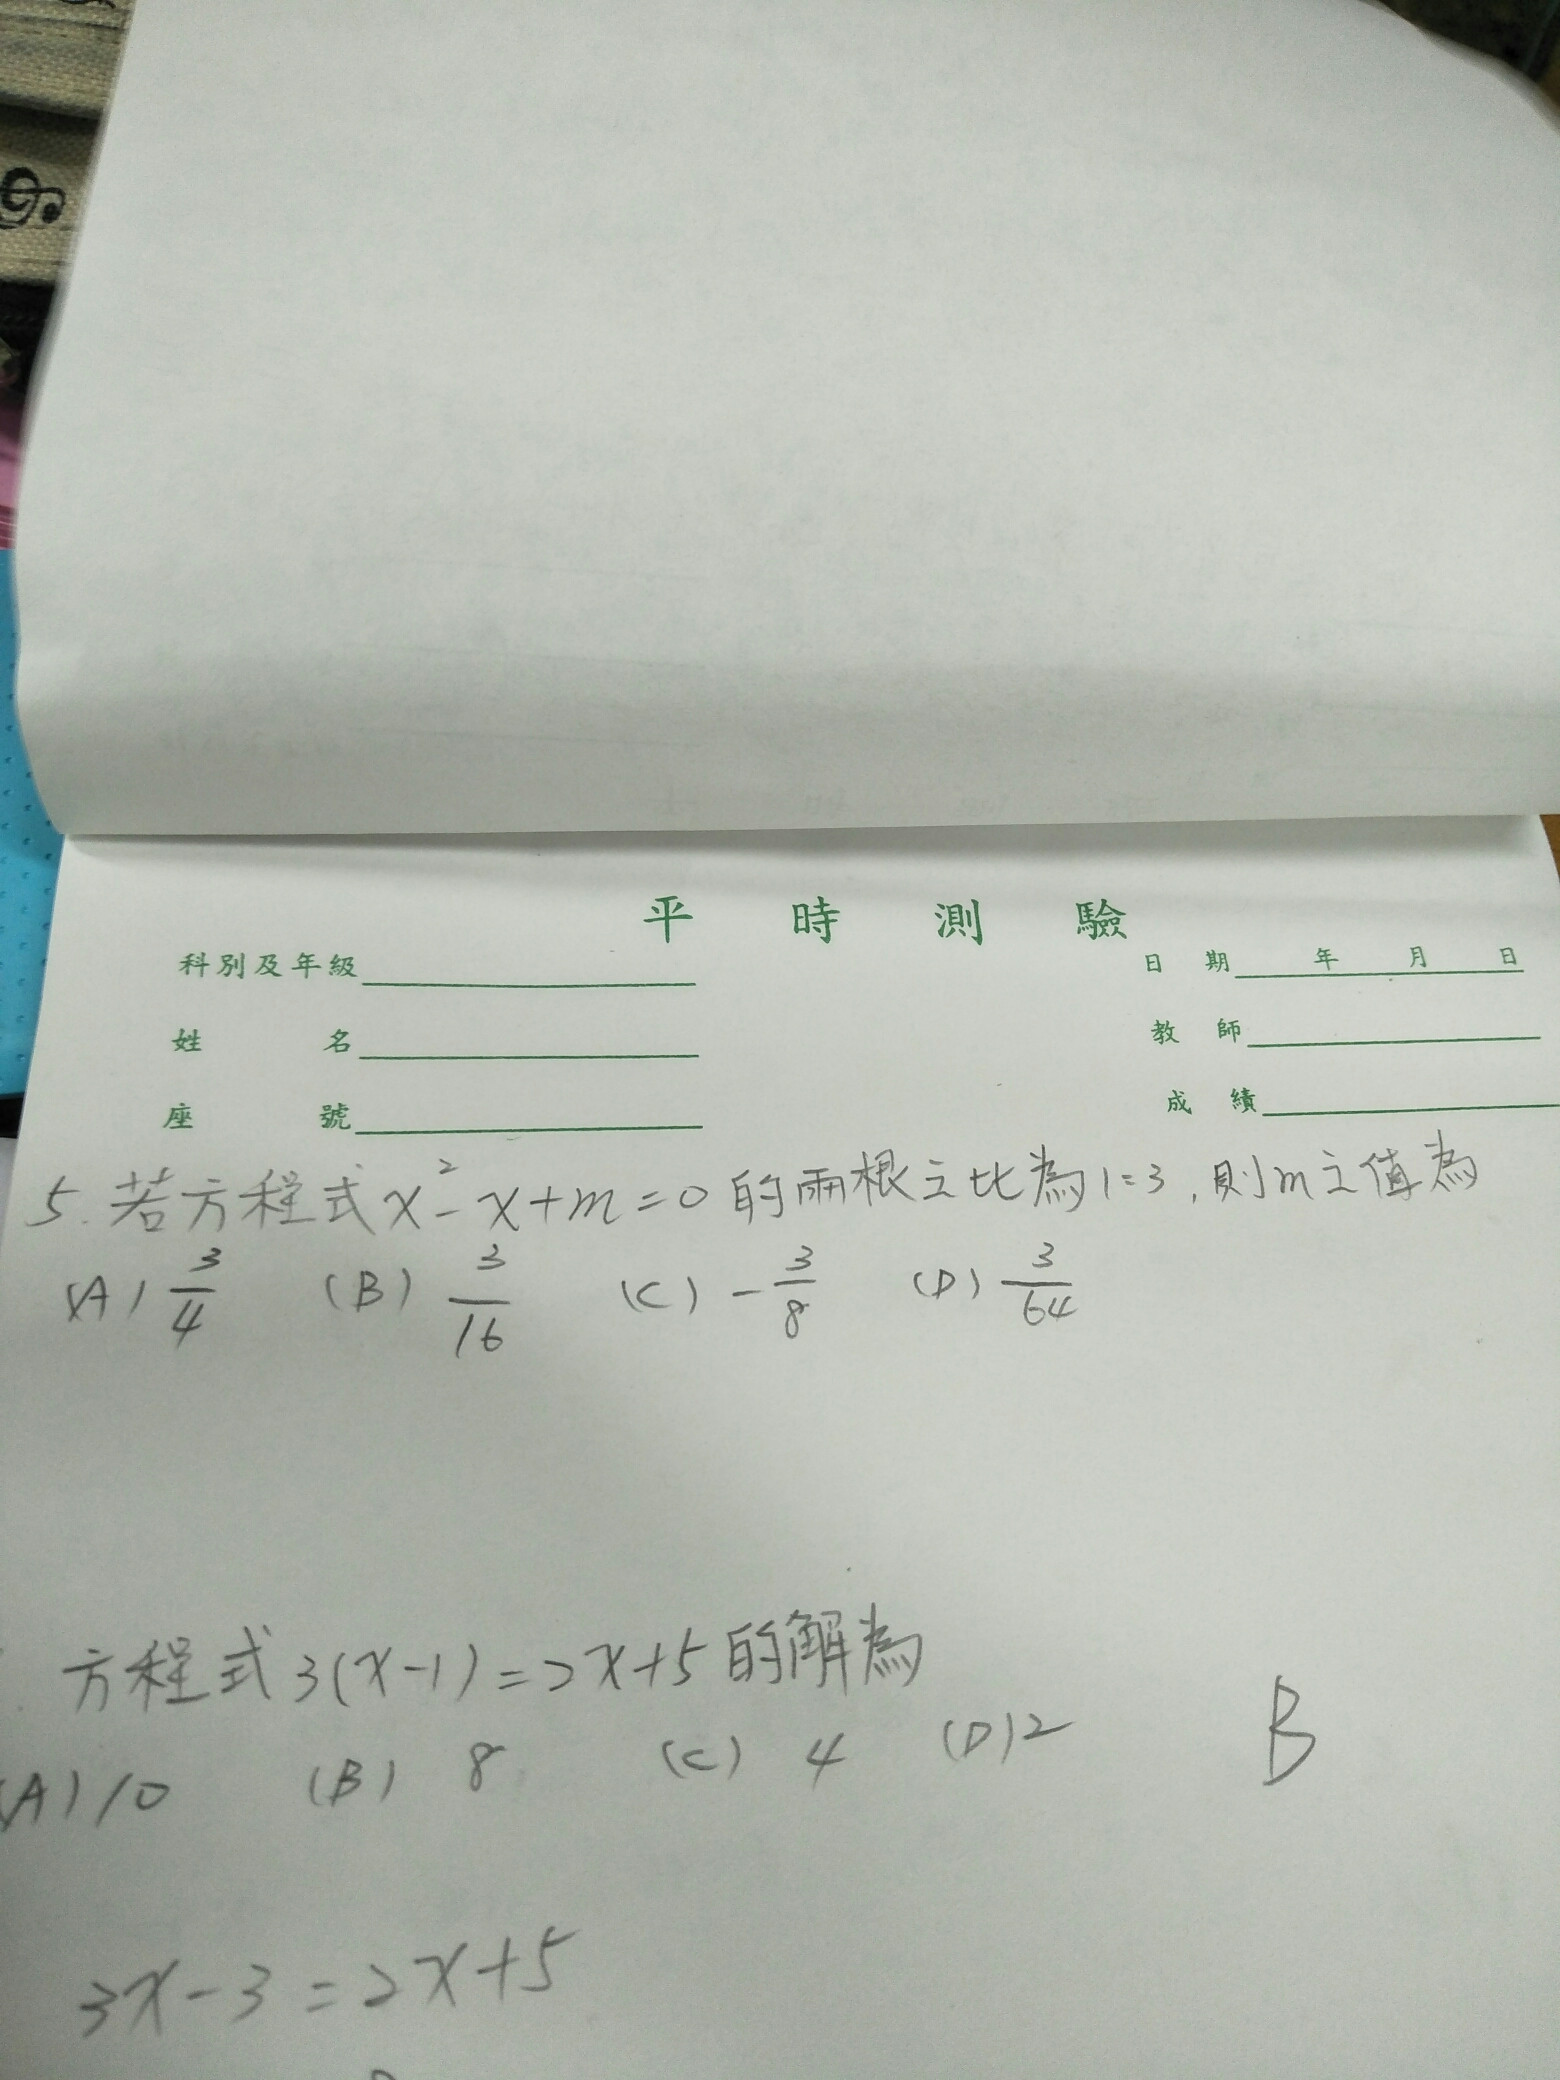 平時測驗
科別及年級 日期 年 月 日
姓名 教師
座號 成績
5. 若方程式x²-x+m=0的兩根之比為1:3, 則m之值為
(A) 3/4 (B) 3/16 (C) -3/8 (D) 3/64
方程式3(x-1)=2x+5的解為
(A) 10 (B) 8 (C) 4 (D) 2 B
3x-3=2x+5